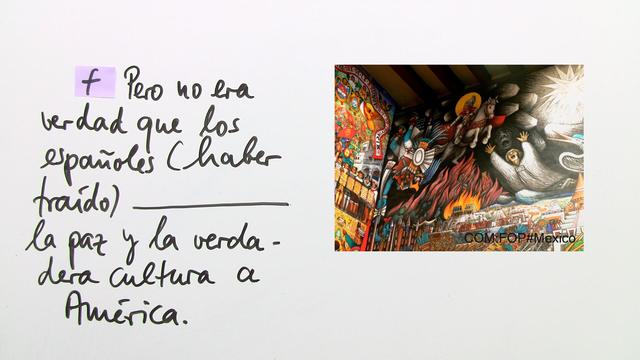 f Pero no era
verdad que los
españoles (haber
traído) ___________
la paz y la verda-
dera cultura a
América.
COM:FOP#Mexico